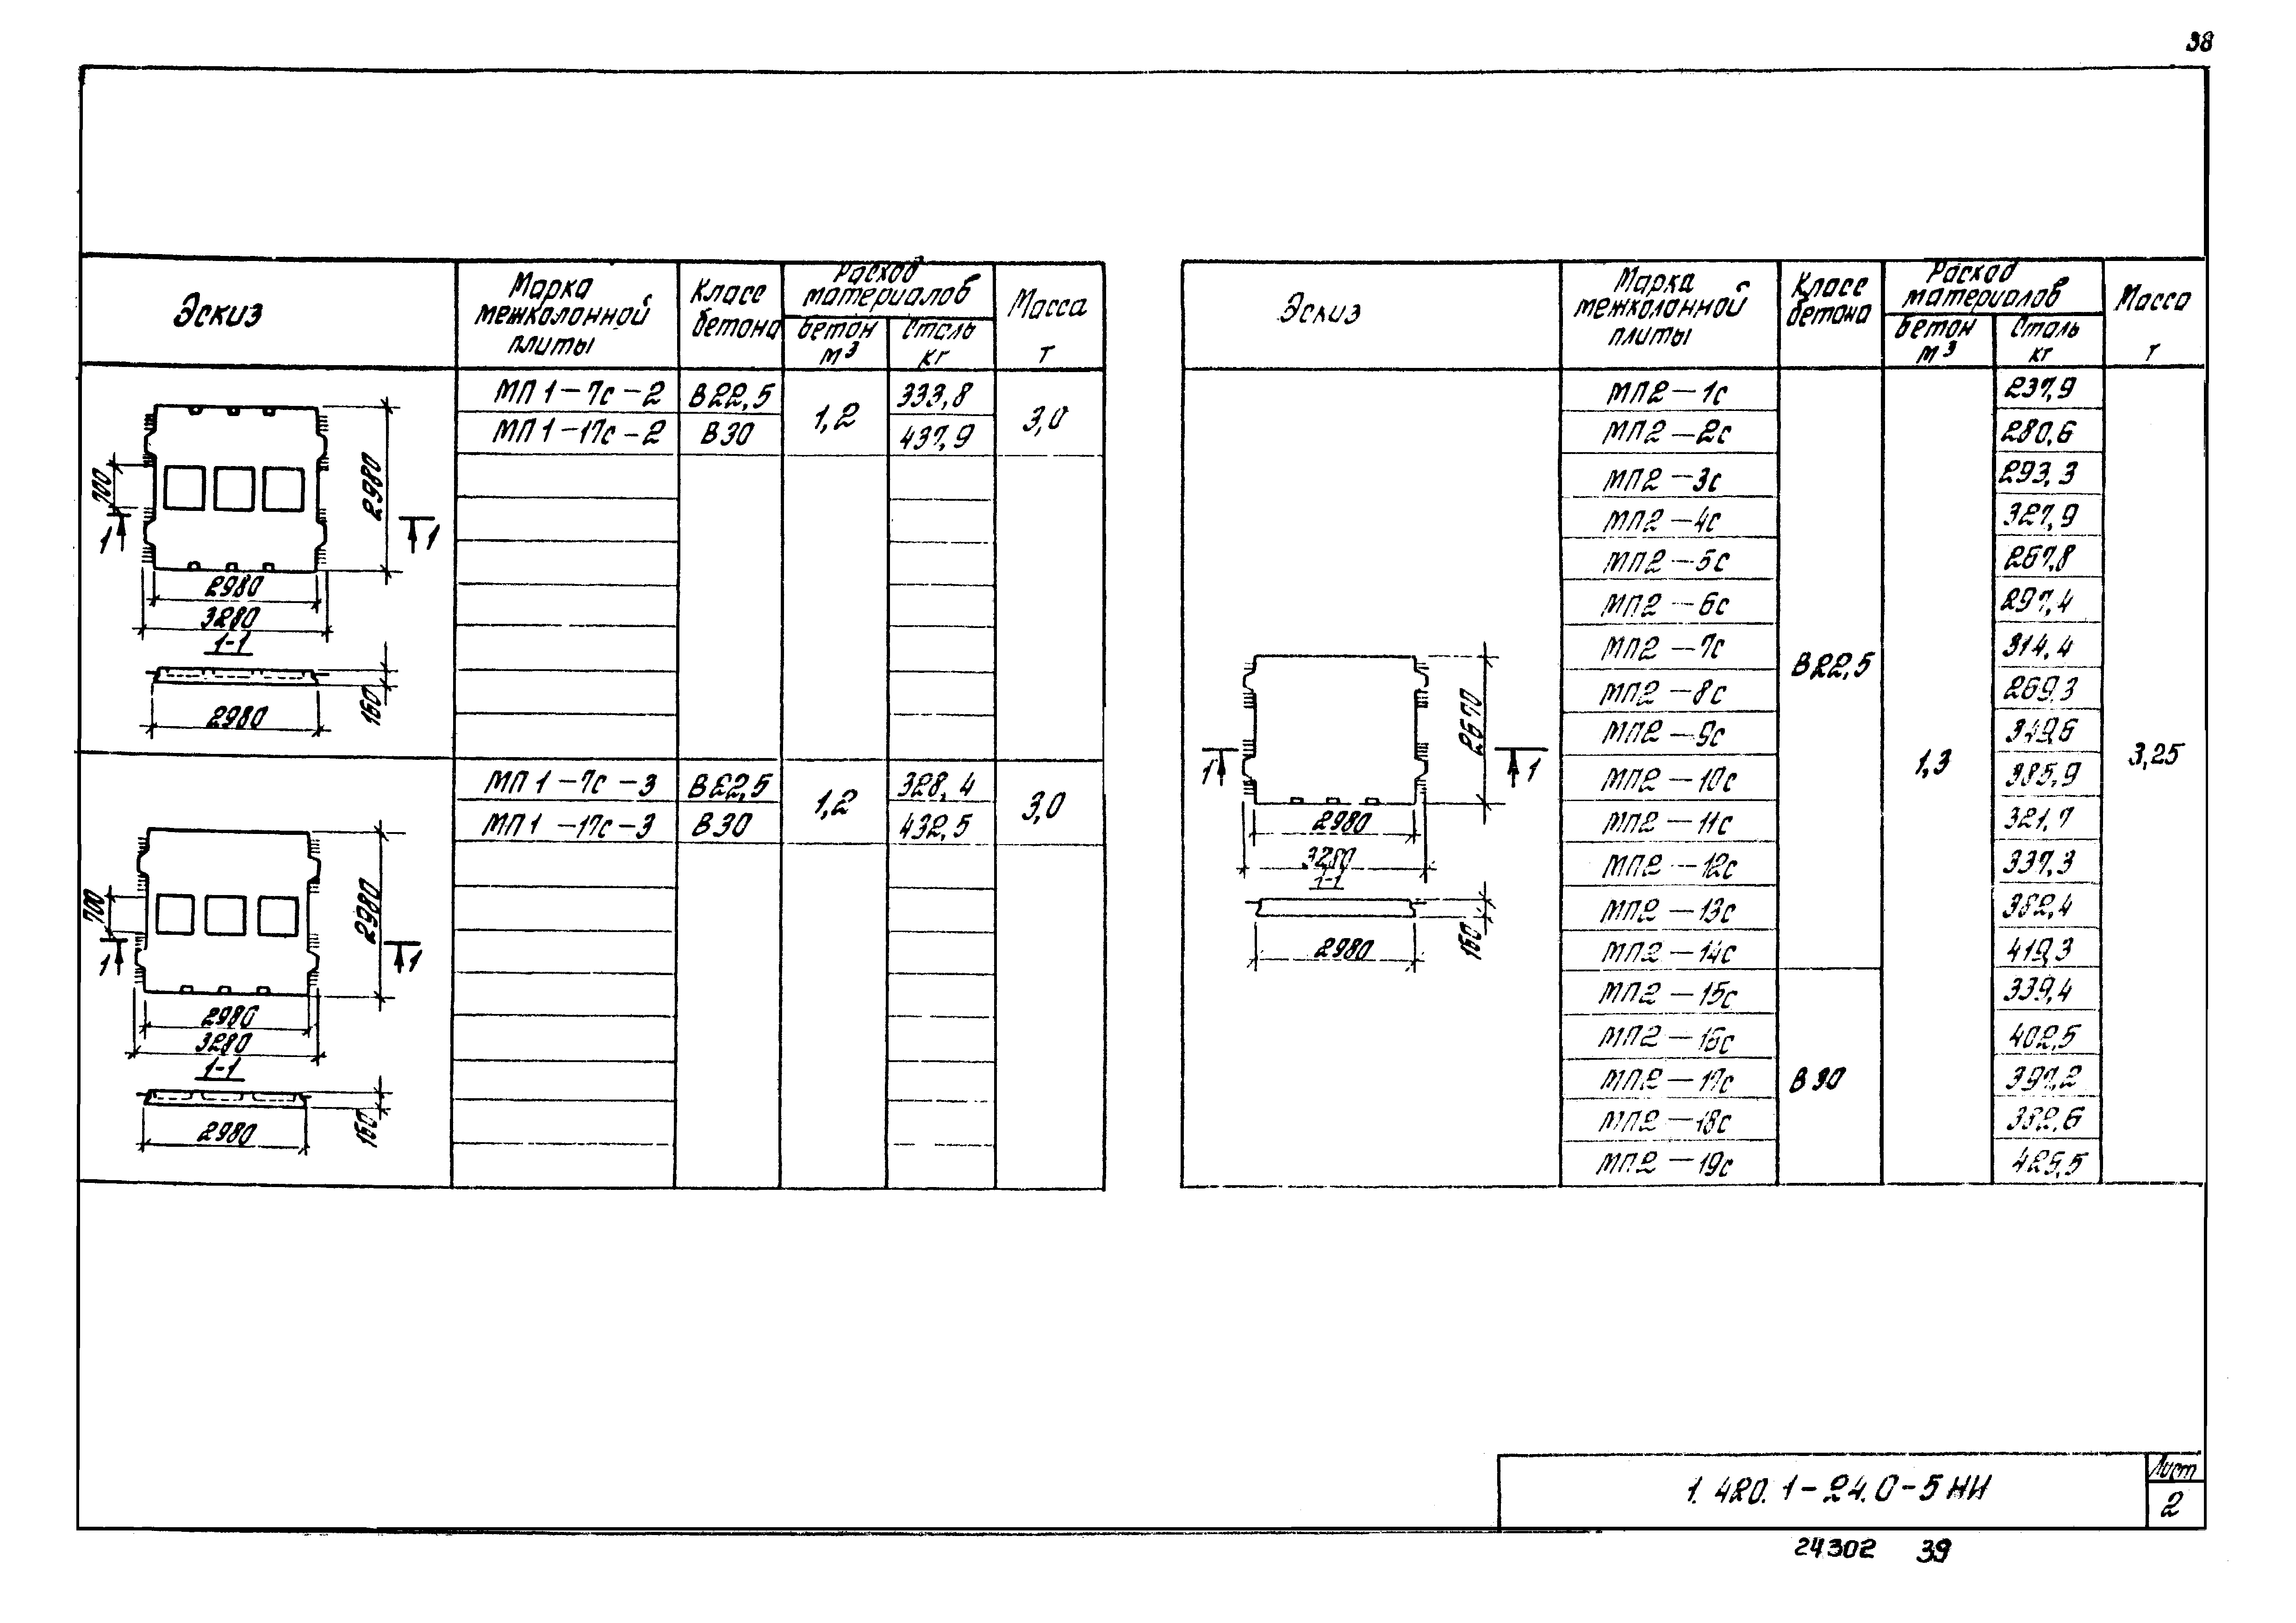 38
Эскиз
Марка межколонной плиты
Класс бетона
Расход материалов
бетон м³
Сталь кг
Масса т
МП1-7с-2 В22,5 1,2 333,8 3,0
МП1-17с-2 В30 437,9
700
2980
1 1
2980
3280
1-1
160
2980
МП1-7с-3 В22,5 1,2 328,4 3,0
МП1-17с-3 В30 432,5
700
2980
1 1
2980
3280
1-1
160
2980
Эскиз
Марка межколонной плиты
Класс бетона
Расход материалов
бетон м³
Сталь кг
Масса т
2670
1 1
2980
3280
1-1
160
2980
МП2-1с 237,9
МП2-2с 280,6
МП2-3с 293,3
МП2-4с 327,9
МП2-5с 267,8
МП2-6с 297,4
МП2-7с В22,5 314,4
МП2-8с 269,3
МП2-9с 349,6
МП2-10с 1,3 385,9 3,25
МП2-11с 321,7
МП2-12с 337,3
МП2-13с 382,4
МП2-14с 419,3
МП2-15с 339,4
МП2-16с 402,5
МП2-17с В30 397,2
МП2-18с 382,6
МП2-19с 425,5
1.420.1-24.0-5НИ
Лист
2
24302 39